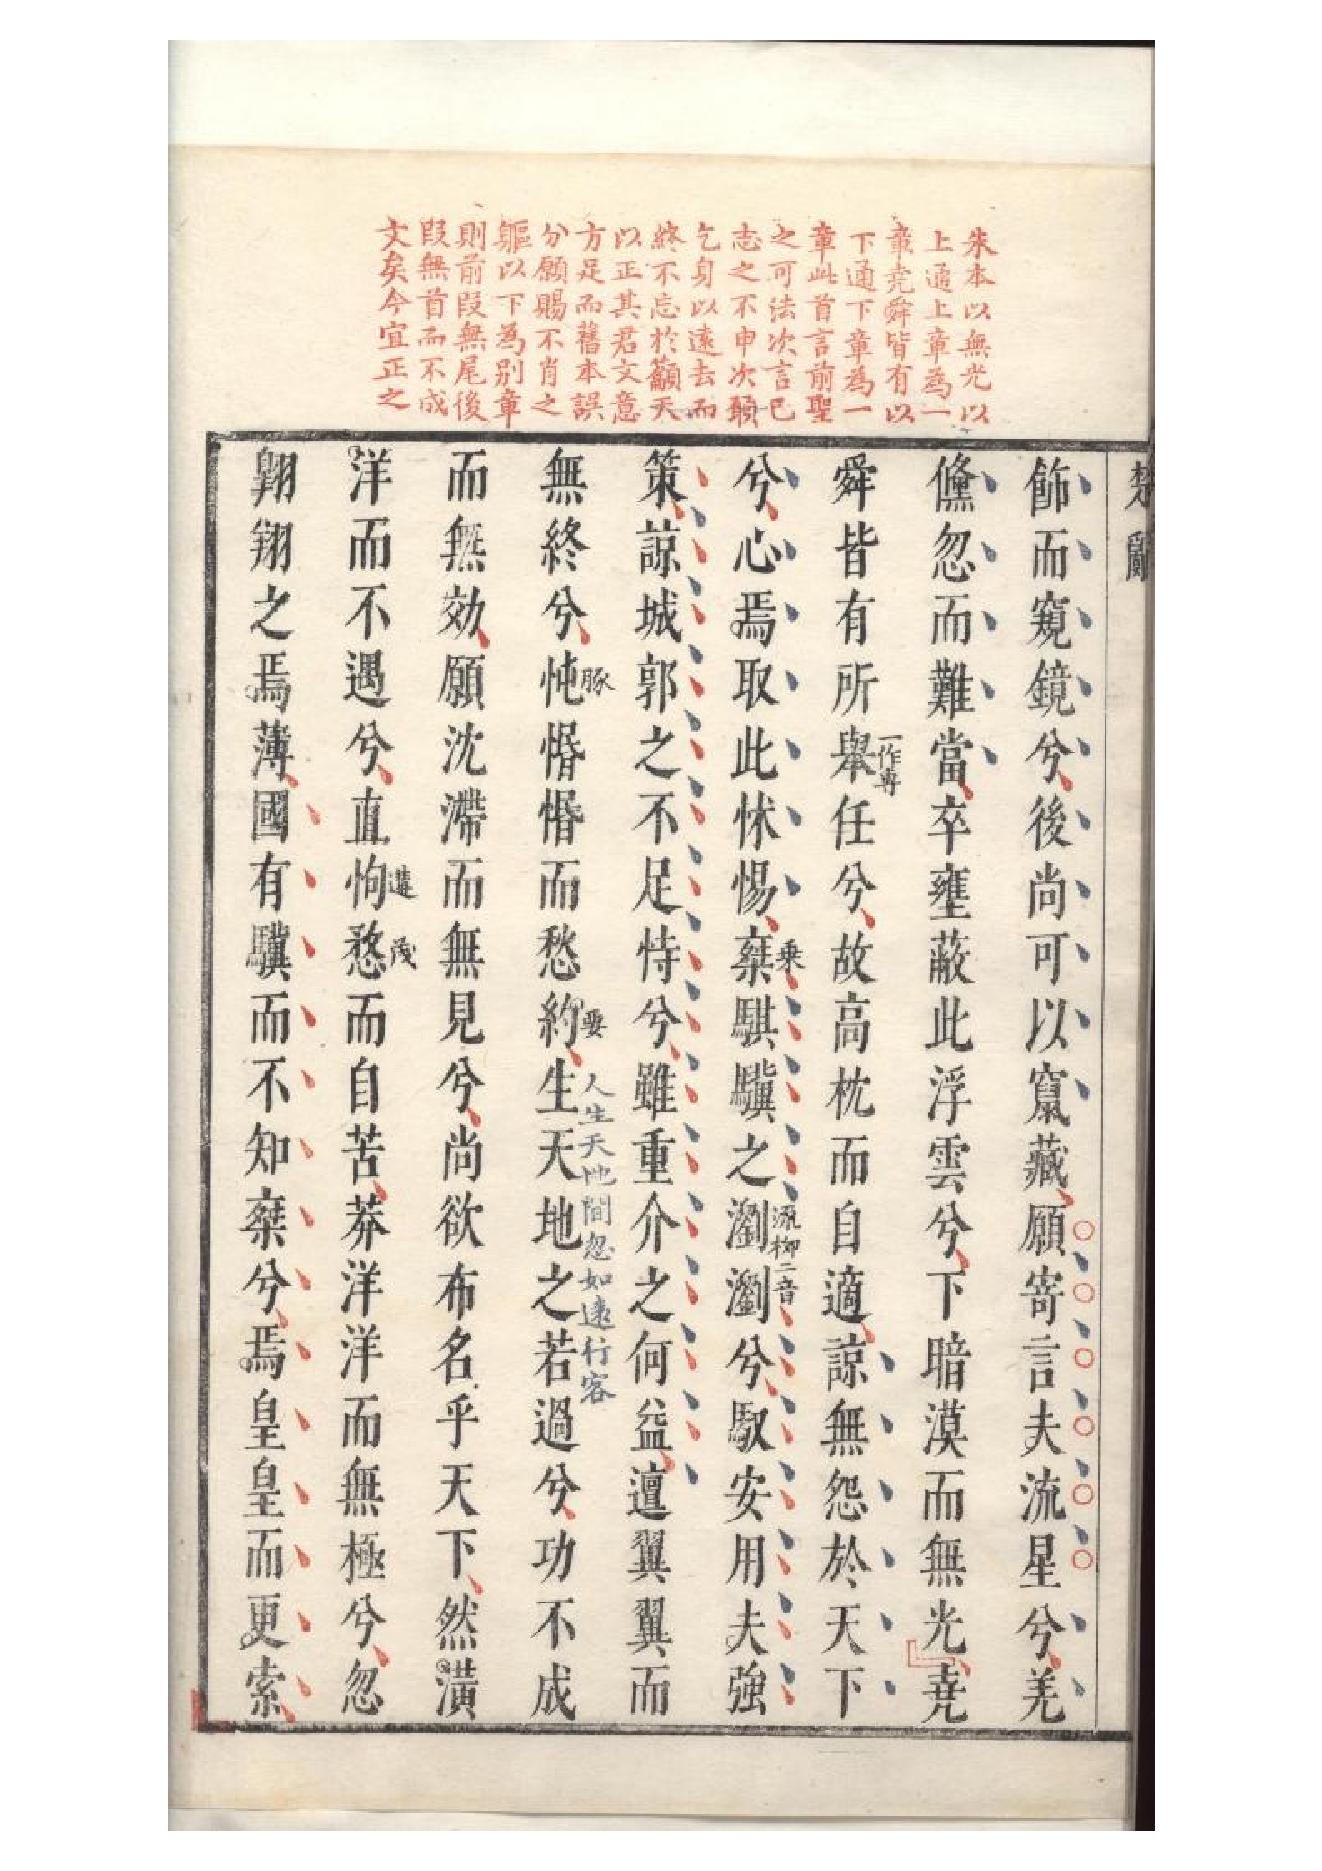 朱本以無光以
上通上章為一
章堯舜皆有以
下通下章為一
章此首言前聖
之可法次言己
志之不申次願
乞身以遠去而
終不忘於籲天
以正其君文意
方足而舊本誤
分願賜不肖之
軀以下為别章
則前段無尾後
段無首而不成
文矣今宜正之
楚辭
飾而窺鏡兮後尚可以竄藏願寄言夫流星兮羌
儵忽而難當卒壅蔽此浮雲兮下暗漠而無光堯
舜皆有所舉任兮故高枕而自適諒無怨於天下
一作專
兮心焉取此怵惕椉騏驥之瀏瀏兮馭安用夫強
乘
流柳二音
策諒城郭之不足恃兮雖重介之何益邅翼翼而
無終兮忳惛惛而愁約生天地之若過兮功不成
豚
要
人生天地間忽如遠行客
而無効願沈滯而無見兮尚欲布名乎天下然潢
洋而不遇兮直怐愗而自苦莽洋洋而無極兮忽
茂
翱翔之焉薄國有驥而不知椉兮焉皇皇而更索